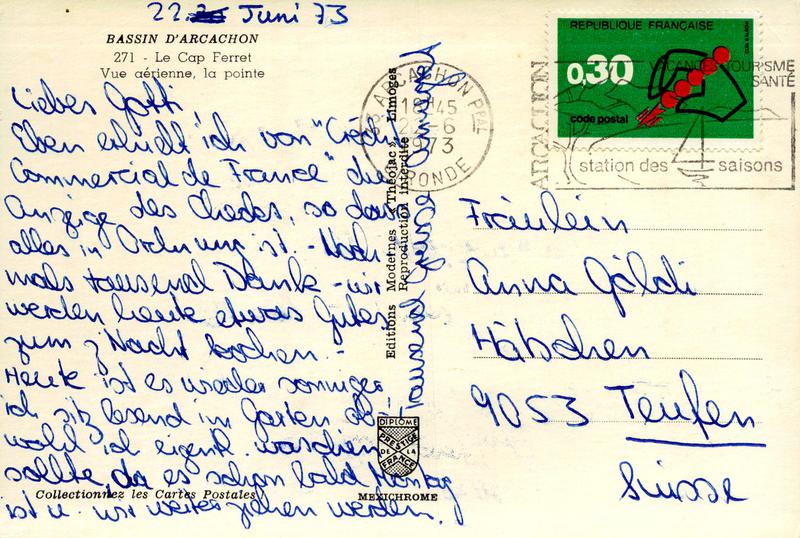 22. Juni 73
BASSIN D'ARCACHON
271 - Le Cap Ferret
Vue aérienne, la pointe
Liebes Gotti
Eben erhielt ich von "Créd.
Commercial de France" die
Anzeige des Checks, so dass
alles in Ordnung ist. - Noch
mals tausend Dank - wir
werden heute etwas Gutes
zum z'Nacht kochen. -
Heute ist es wieder sonniger
ich sitz lesend im Garten ob-
wohl ich eigentl. waschen
sollte, da es schon bald Montag
ist u. wir weiterziehen werden.
Tausend
Editions Modernes "Théojac", Limoges
Reproduction interdite
DIPLOME
PRESTIGE
DE LA
FRANCE
Collectionnez les Cartes Postales !
MEXICHROME
33 ARCACHON PPAL
18H45
22-6
1973
GIRONDE
REPUBLIQUE FRANÇAISE
0,30
code postal
ARCACHON
VACANCES TOURISME
SANTÉ
station des 4 saisons
Fräulein
Anna Gäldi
Hätschen
9053 Teufen
Suisse